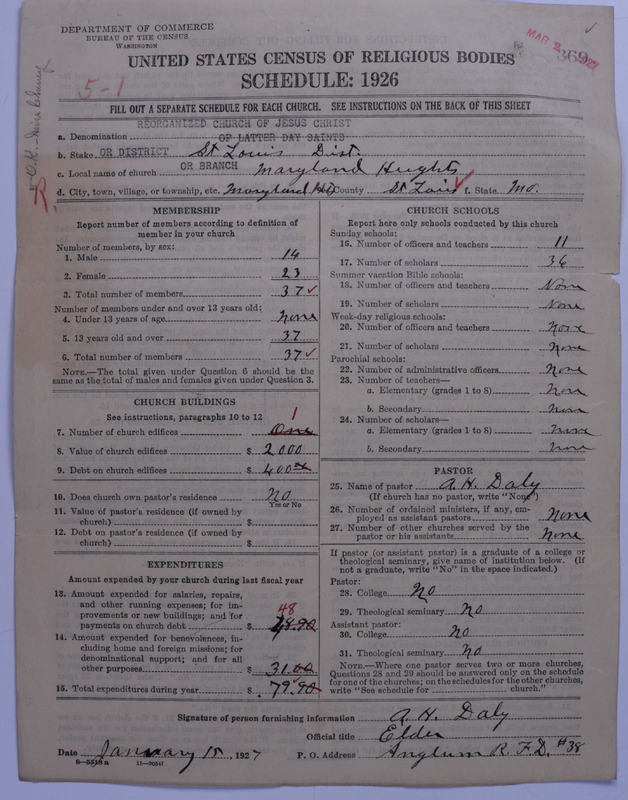 DEPARTMENT OF COMMERCE
BUREAU OF THE CENSUS
WASHINGTON
MAR 2 1927
369
UNITED STATES CENSUS OF RELIGIOUS BODIES
SCHEDULE: 1926
5-1
FILL OUT A SEPARATE SCHEDULE FOR EACH CHURCH. SEE INSTRUCTIONS ON THE BACK OF THIS SHEET
REORGANIZED CHURCH OF JESUS CHRIST
a. Denomination OF LATTER DAY SAINTS
b. Stake OR DISTRICT St Louis Dist.
c. Local name of church OR BRANCH Maryland Heights
d. City, town, village, or township, etc. Maryland Hts County St Louis f. State Mo.
MEMBERSHIP
Report number of members according to definition of
member in your church
Number of members, by sex:
1. Male 14
2. Female 23
3. Total number of members 37
Number of members under and over 13 years old:
4. Under 13 years of age None
5. 13 years old and over 37
6. Total number of members 37
NOTE.—The total given under Question 6 should be
the same as the total of males and females given under Question 3.
CHURCH BUILDINGS
See instructions, paragraphs 10 to 12
1
7. Number of church edifices One
8. Value of church edifices $ 2000
9. Debt on church edifices $ 400
10. Does church own pastor's residence No
Yes or No
11. Value of pastor's residence (if owned by
church) $
12. Debt on pastor's residence (if owned by
church) $
EXPENDITURES
Amount expended by your church during last fiscal year
13. Amount expended for salaries, repairs,
and other running expenses; for im-
provements or new buildings; and for 48
payments on church debt $ 48.90
14. Amount expended for benevolences, in-
cluding home and foreign missions; for
denominational support; and for all
other purposes $ 31.00
15. Total expenditures during year $ 79.90
CHURCH SCHOOLS
Report here only schools conducted by this church
Sunday schools:
16. Number of officers and teachers 11
17. Number of scholars 36
Summer vacation Bible schools:
18. Number of officers and teachers None
19. Number of scholars None
Week-day religious schools:
20. Number of officers and teachers None
21. Number of scholars None
Parochial schools:
22. Number of administrative officers None
23. Number of teachers—
a. Elementary (grades 1 to 8) None
b. Secondary None
24. Number of scholars—
a. Elementary (grades 1 to 8) None
b. Secondary None
PASTOR
25. Name of pastor A. H. Daly
(If church has no pastor, write "None")
26. Number of ordained ministers, if any, em-
ployed as assistant pastors None
27. Number of other churches served by the
pastor or his assistants None
If pastor (or assistant pastor) is a graduate of a college or
theological seminary, give name of institution below. (If
not a graduate, write "No" in the space indicated.)
Pastor:
28. College No
29. Theological seminary No
Assistant pastor:
30. College No
31. Theological seminary No
NOTE.—Where one pastor serves two or more churches,
Questions 28 and 29 should be answered only on the schedule
for one of the churches; on the schedules for the other churches,
write "See schedule for church."
Signature of person furnishing information A. H. Daly
Official title Elder
Date January 15, 1927 P. O. Address Anglum R. F. D. #38
8—5518a